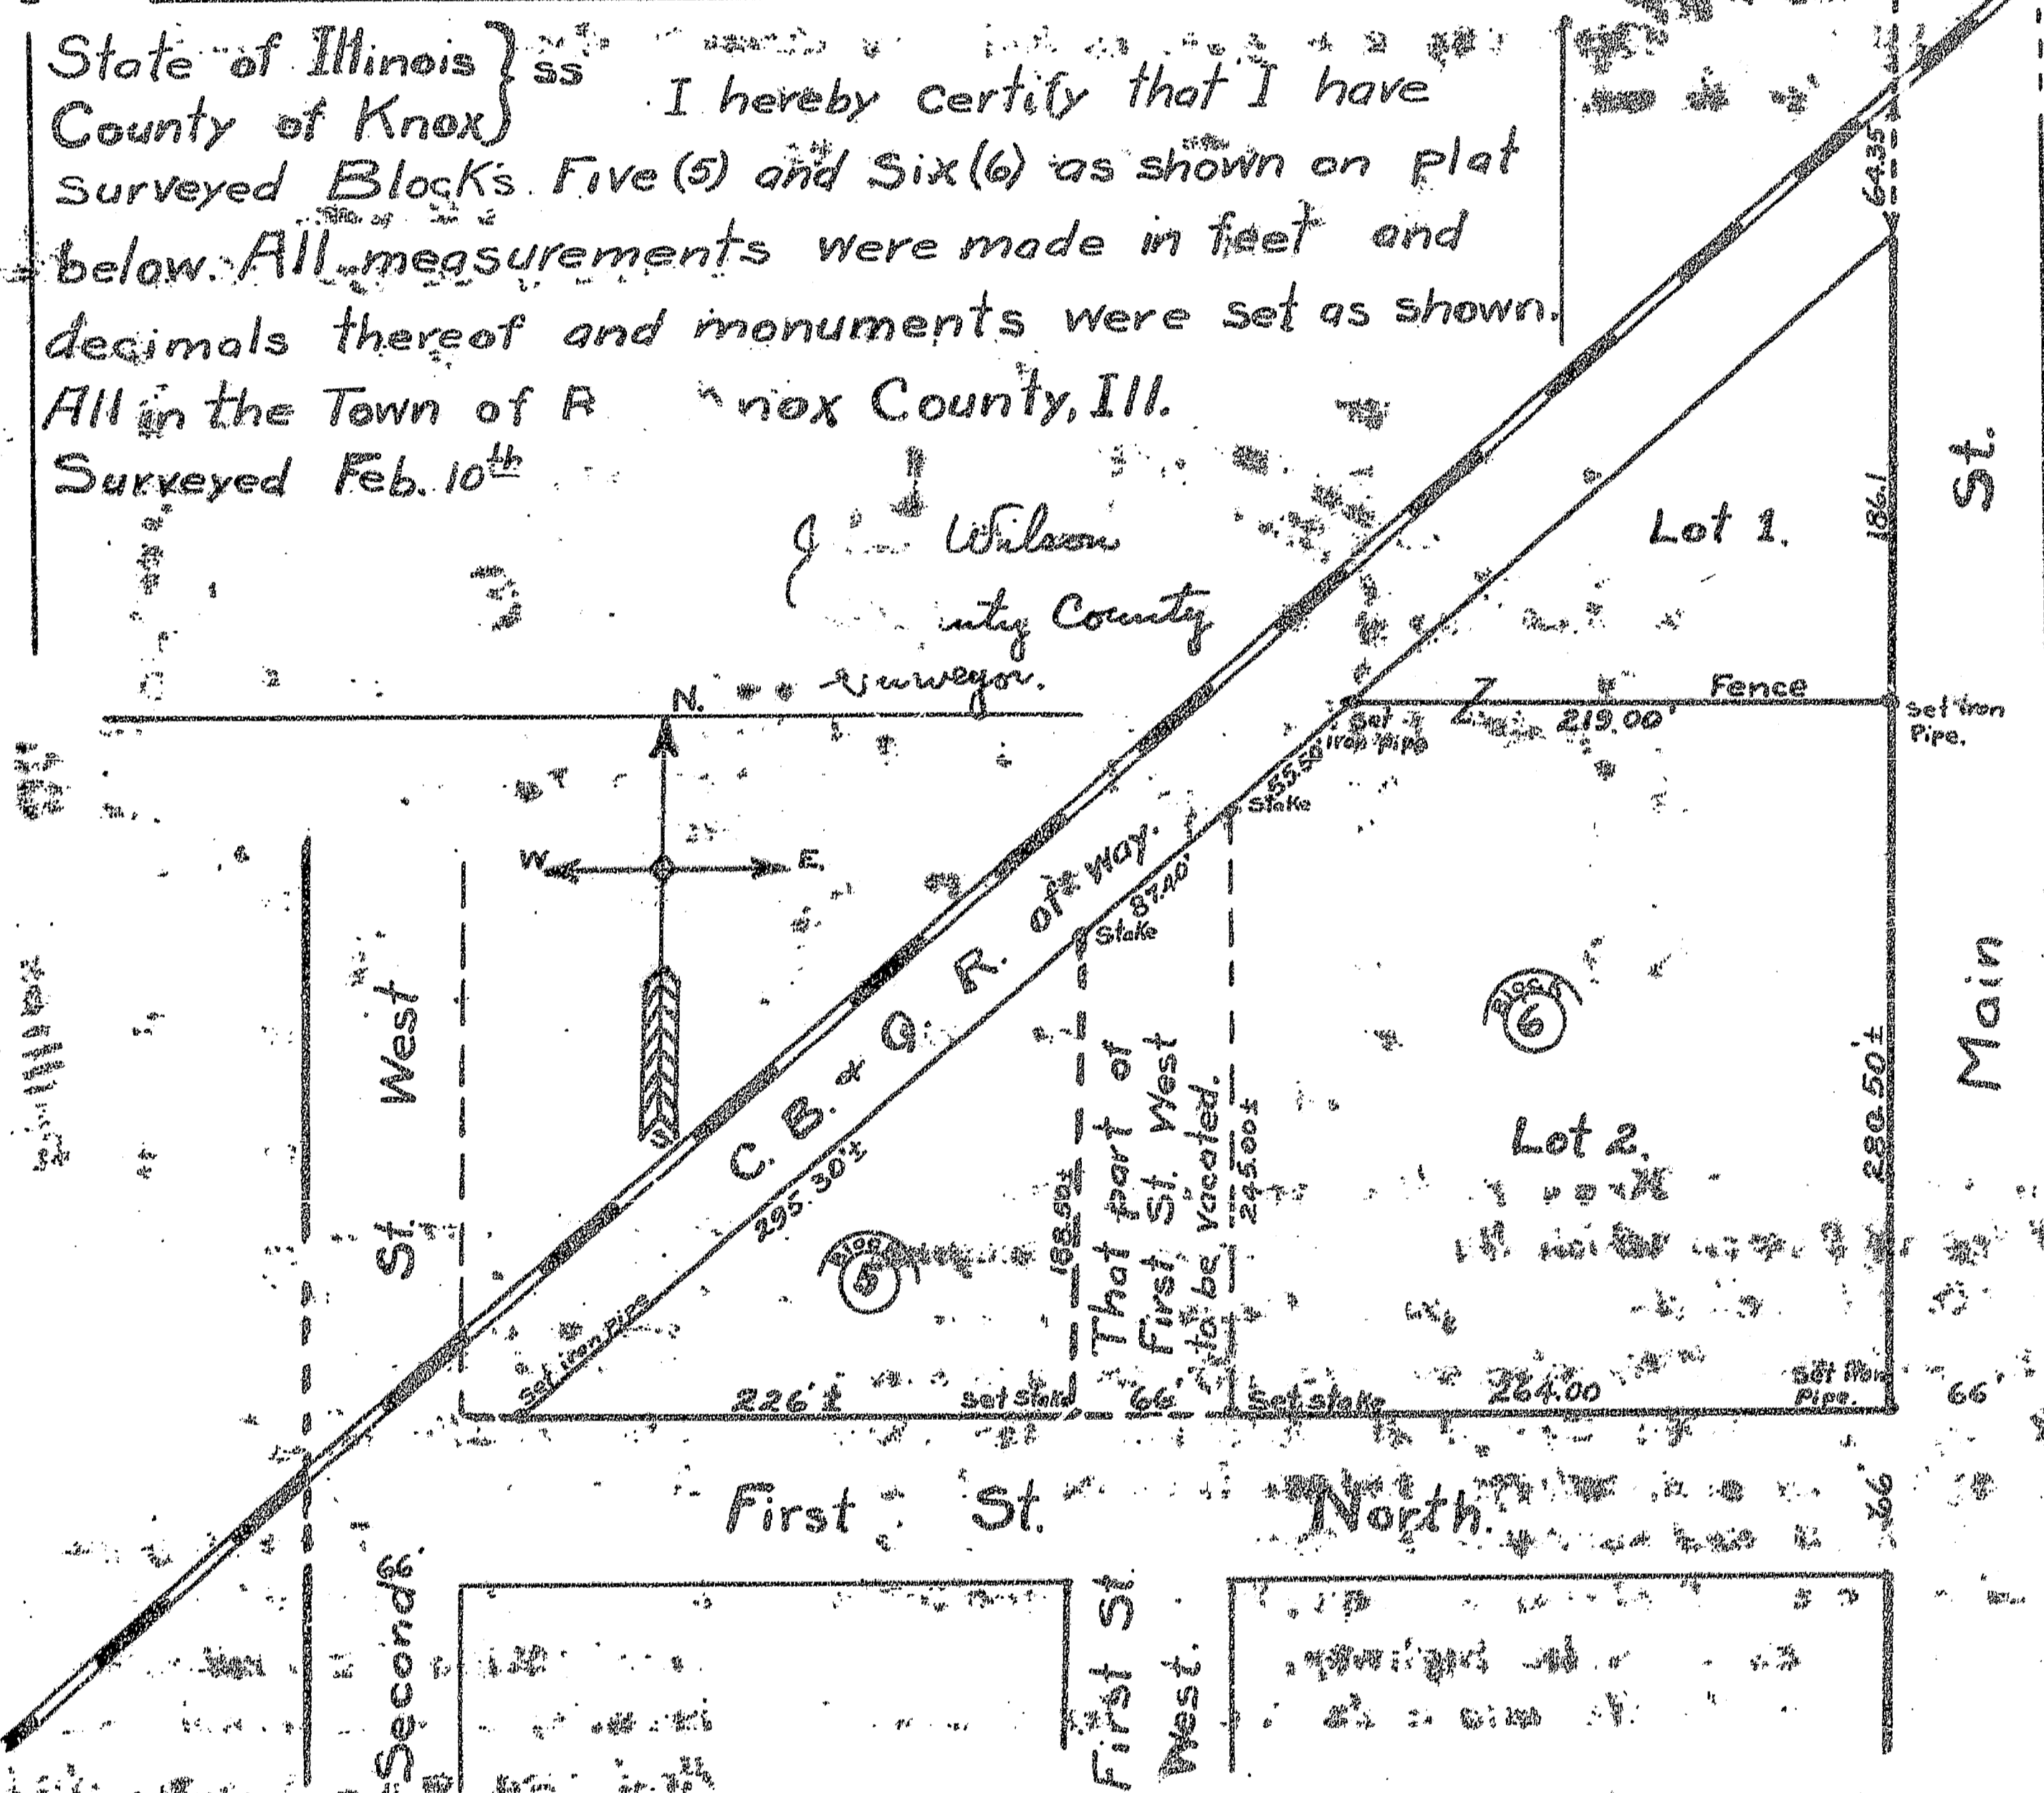 State of Illinois } ss
County of Knox
I hereby certify that I have
surveyed Blocks Five (5) and Six (6) as shown on plat
below. All measurements were made in feet and
decimals thereof and monuments were set as shown.
All in the Town of nox County, Ill.
Surveyed Feb. 10th
Wilson
County
surveyor.
N.
W
E.
S
64.35
186.1
Lot 1.
St.
Main
Fence
219.00'
Set Iron Pipe
Set Iron
Pipe.
55.50'
Stake
87.40'
Stake
C. B. & Q. R. of way.
295.30'±
Set iron pipe
Block
5
188.50±
That part of
First St. West
to be vacated.
245.00±
Block
6
Lot 2.
280.50'±
St. West
226'±
Set stake
66'
Set stake
264.00
Set Iron
Pipe.
66'
66
First St. North.
Second
66.
First St
West.